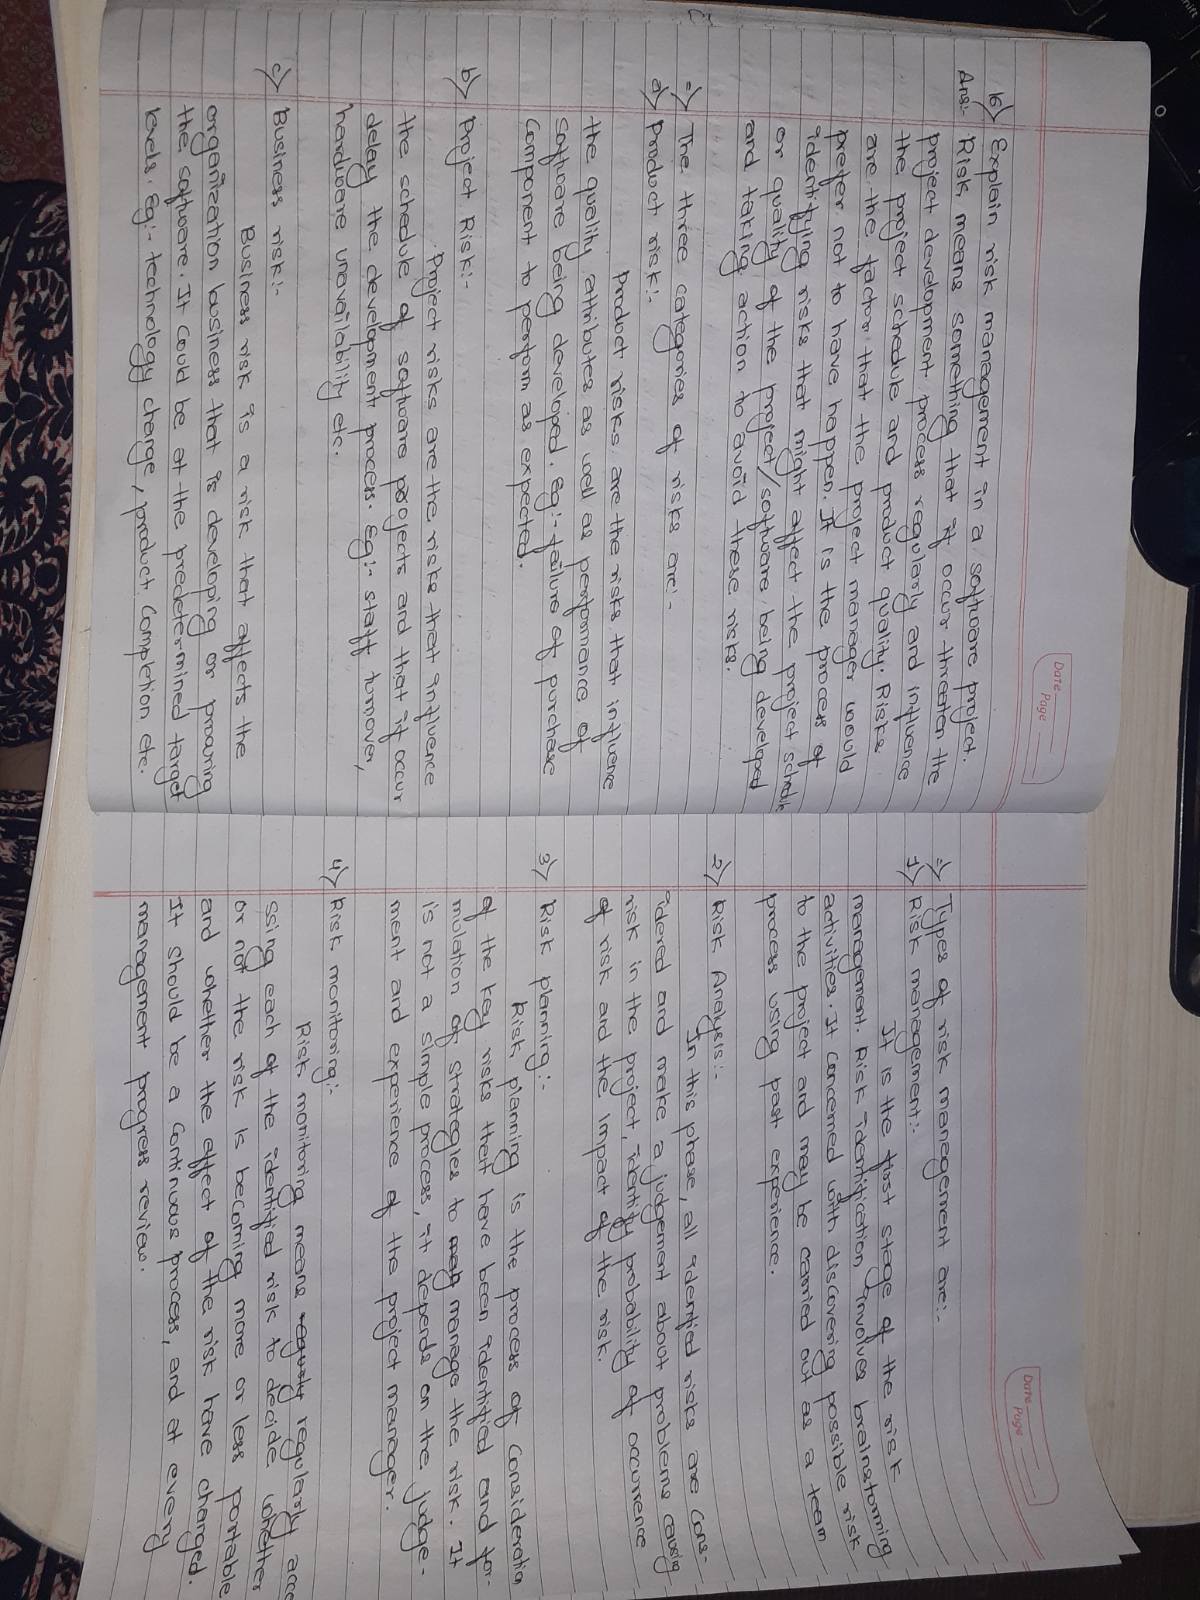 Date
Page
16> Explain risk management in a software project.
Ans:- Risk means something that it occur threaten the
project development process regularly and influence
the project schedule and product quality. Risks
are the factor that the project manager would
prefer not to have happen. It is the process of
identifying risks that might affect the project schedule
or quality of the project/software being developed
and taking action to avoid these risks.
=> The three categories of risks are:-
a> Product risk:-
Product risks are the risks that influence
the quality attributes as well as performance of
software being developed. Eg:- failure of purchase
component to perform as expected.
b> Project Risk:-
Project risks are the risks that influence
the schedule of software projects and that if occur
delay the development process. Eg:- staff turnover,
hardware unavailability etc.
c> Business risk:-
Business risk is a risk that affects the
organization business that is developing or procuring
the software. It could be at the predetermined target
levels. Eg:- technology change, product completion etc.
Date
Page
=> Types of risk management are:-
1> Risk management:-
It is the first stage of the risk
management. Risk identification involves brainstorming
activities. It concerned with discovering possible risk
to the project and may be carried out as a team
process using past experience.
2> Risk Analysis:-
In this phase, all identified risks are cons-
idered and make a judgement about problems causing
risk in the project, identify probability of occurrence
of risk and the impact of the risk.
3> Risk planning:-
Risk planning is the process of consideration
of the key risks that have been identified and for-
mulation of strategies to manage the risk. It
is not a simple process, it depends on the judge-
ment and experience of the project manager.
4> Risk monitoring:-
Risk monitoring means regularly asse
ssing each of the identified risk to decide whether
or not the risk is becoming more or less portable
and whether the effect of the risk have changed.
It should be a continuous process, and at every
management progress review.